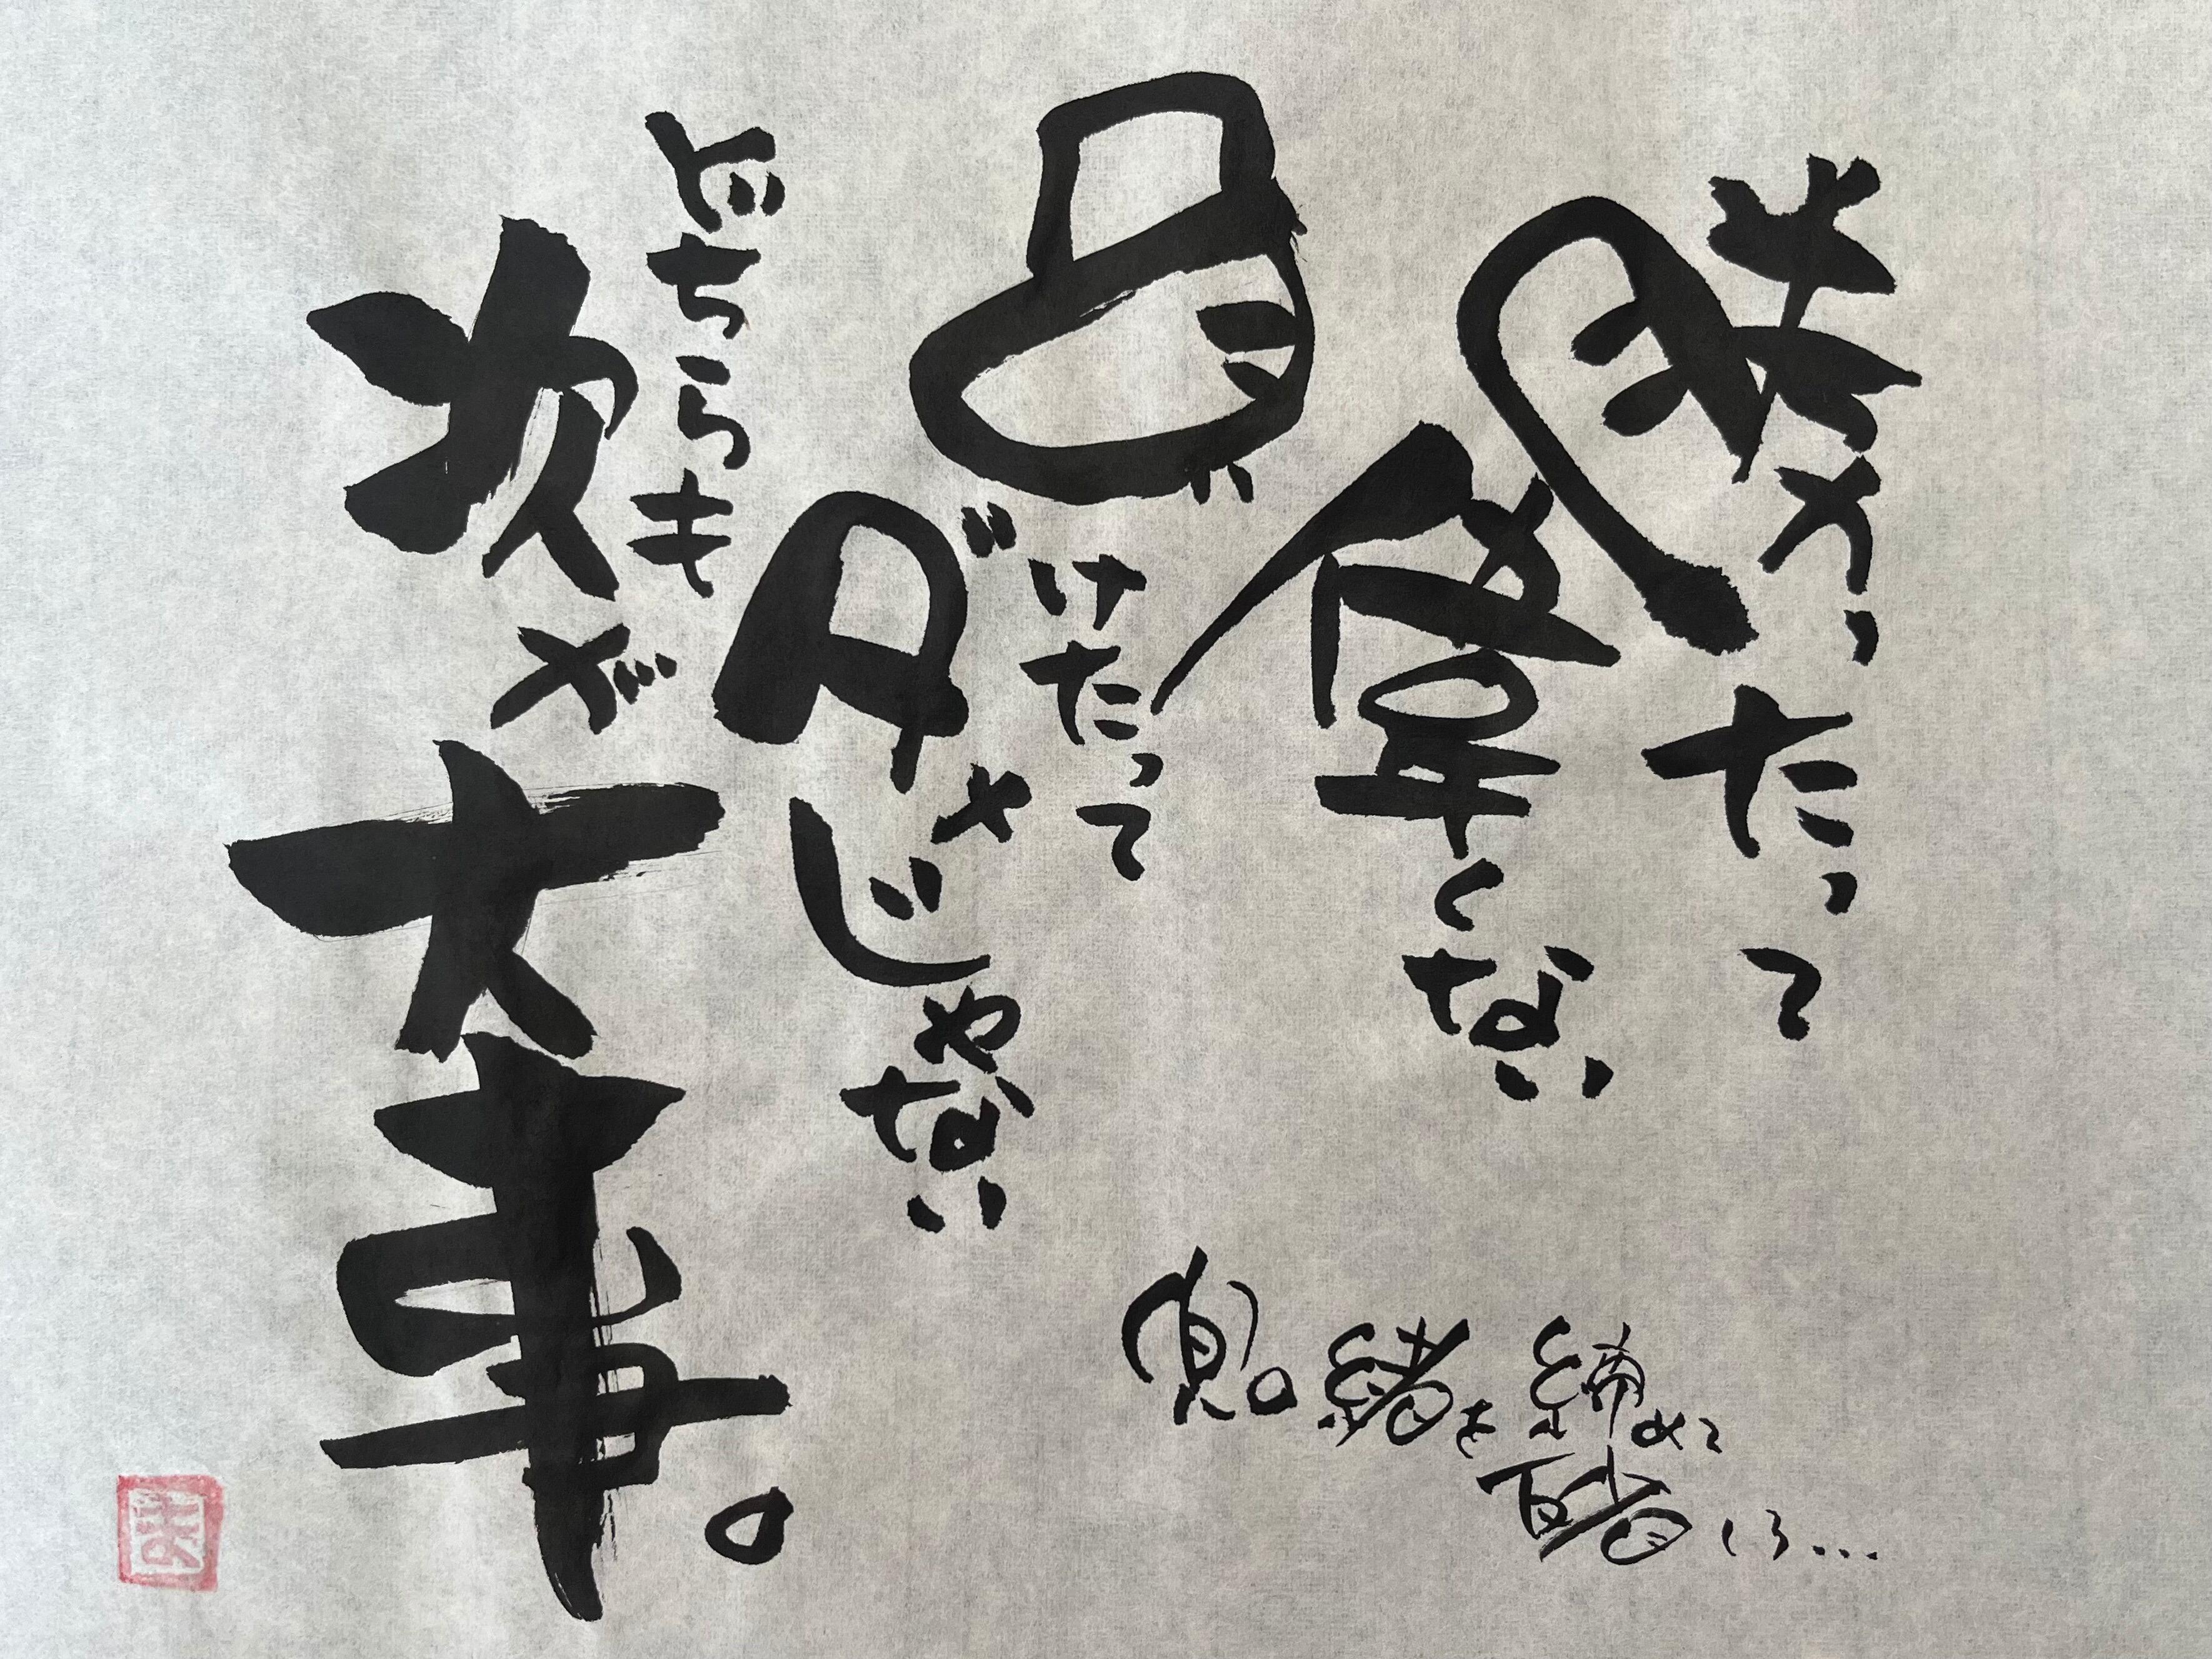 勝ったって
偉くない
負けたって
ダメじゃない
どちらも
次が
大事。
兜の緒を締めて
反省しろ...
ま